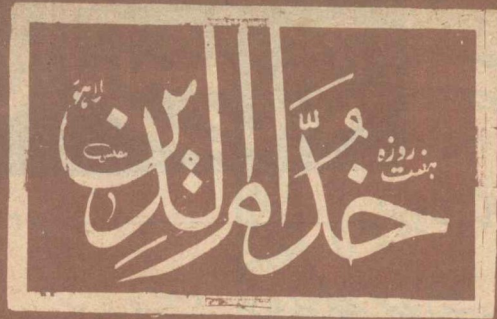 ہفت روزہ
خدّام الدِّین
لاہور